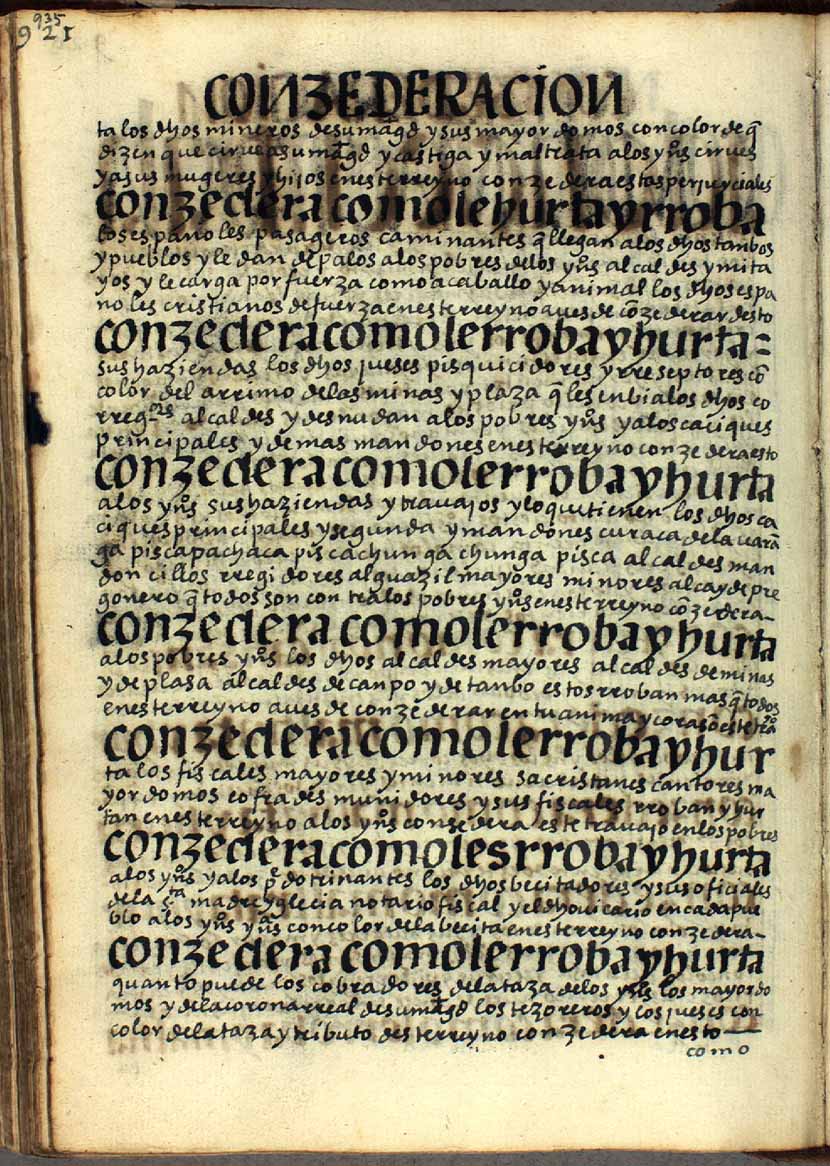 935
921
CONZEDERACION
ta los dhos mineros de su magd y sus mayordomos con color de q̃
dizen que cirue a su magd y castiga y maltrata a los yos̃ cirues
y a sus mugeres y hijos en este rreyno conzedera estos perjuyciales
conzedera como le hurta y rroba
los espanoles pasageros caminantes q̃ llegan a los dhos tanbos
y pueblos y le dan de palos a los pobres de los yos̃ alcaldes y mita
yos y le carga por fuerza como a caballo y animal los dhos espa
noles cristianos de fuerza en este rreyno aues de cõzederar desto
conzedera como le rroba y hurta=
sus haziendas los dhos jueses pisquicidores y rreseptores cõ
color del arrimo de las minas y plaza q̃ les enbia los dhos co
rregres alcaldes y desnudan a los pobres yos̃ y a los caciques
principales y demas mandones en este rreyno conzedera esto
conzedera como le rroba y hurta
a los yos̃ sus haziendas y trauajos y lo que tienen los dhos ca
ciques principales y segunda y mandones curaca de la uaran
ga pisca pachaca pisca chunga chunga pisca alcaldes man
doncillos rregidores alguazil mayores minores alcayde pre
gonero q̃ todos son contra los pobres yos̃ en este rreyno cõzedera-
conzedera como le rroba y hurta
a los pobres yos̃ los dhos alcaldes mayores alcaldes de minas
y de plasa alcaldes de canpo y de tanbo estos rroban mas q̃ todos
en este rreyno aues de conzederar en tu anima y corasõ este trao
conzedera como le rroba y hur
ta los fiscales mayores y minores sacristanes cantores ma
yordomos cofrades munidores y sus fiscales rroban y hur
tan en este rreyno a los yos̃ consedera este trauajo en los pobres
conzedera como les rroba y hurta
a los yos̃ y a los pe dotrinantes los dhos becitadores y sus oficiales
de la sta madre yglecia notario fiscal y el dho uicario en cada pue
blo a los yos̃ yas̃ con color de la becita en este rreyno conzedera-
conzedera como le rroba y hurta
quanto puede los cobradores de la taza de los yos̃ los mayordo
mos y de la corona rreal de su magd los tezoreros y los jueses con
color de la taza y tributo deste rreyno conzedera en esto—
como